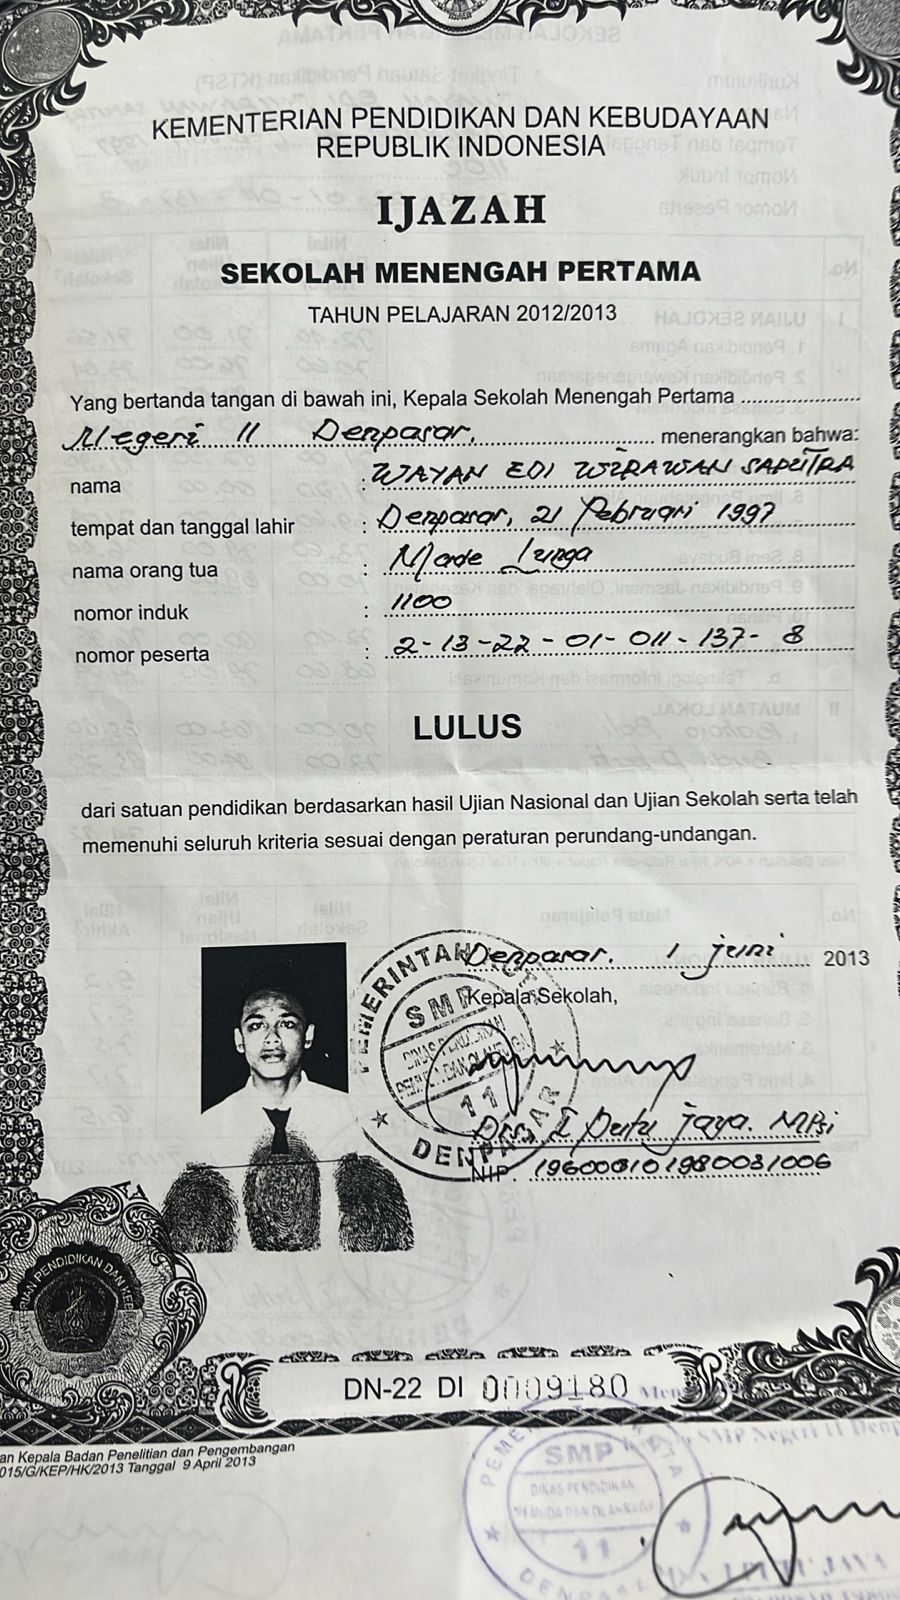 KEMENTERIAN PENDIDIKAN DAN KEBUDAYAAN
REPUBLIK INDONESIA
IJAZAH
SEKOLAH MENENGAH PERTAMA
TAHUN PELAJARAN 2012/2013
Yang bertanda tangan di bawah ini, Kepala Sekolah Menengah Pertama
Negeri 11 Denpasar. menerangkan bahwa:
nama : WAYAN EDI WIRAWAN SAPUTRA
tempat dan tanggal lahir : Denpasar, 21 Pebruari 1997
nama orang tua : Made Lunga
nomor induk : 1100
nomor peserta : 2-13-22-01-011-137-8
LULUS
dari satuan pendidikan berdasarkan hasil Ujian Nasional dan Ujian Sekolah serta telah
memenuhi seluruh kriteria sesuai dengan peraturan perundang-undangan.
Denpasar. 1 juni 2013
Kepala Sekolah,
PEMERINTAH
SMP
DINAS PENDIDIKAN
PEMUDA DAN OLAHRAGA
11
DENPASAR
I Putu Jaya. MPsi
NIP.
PENDIDIKAN DAN
DN-22 DI 0009180
an Kepala Badan Penelitian dan Pengembangan
015/G/KEP/HK/2013 Tanggal 9 April 2013
SMP Negeri 11
SMP
DINAS PENDIDIKAN
PEMUDA DAN OLAHRAGA
11
JAYA